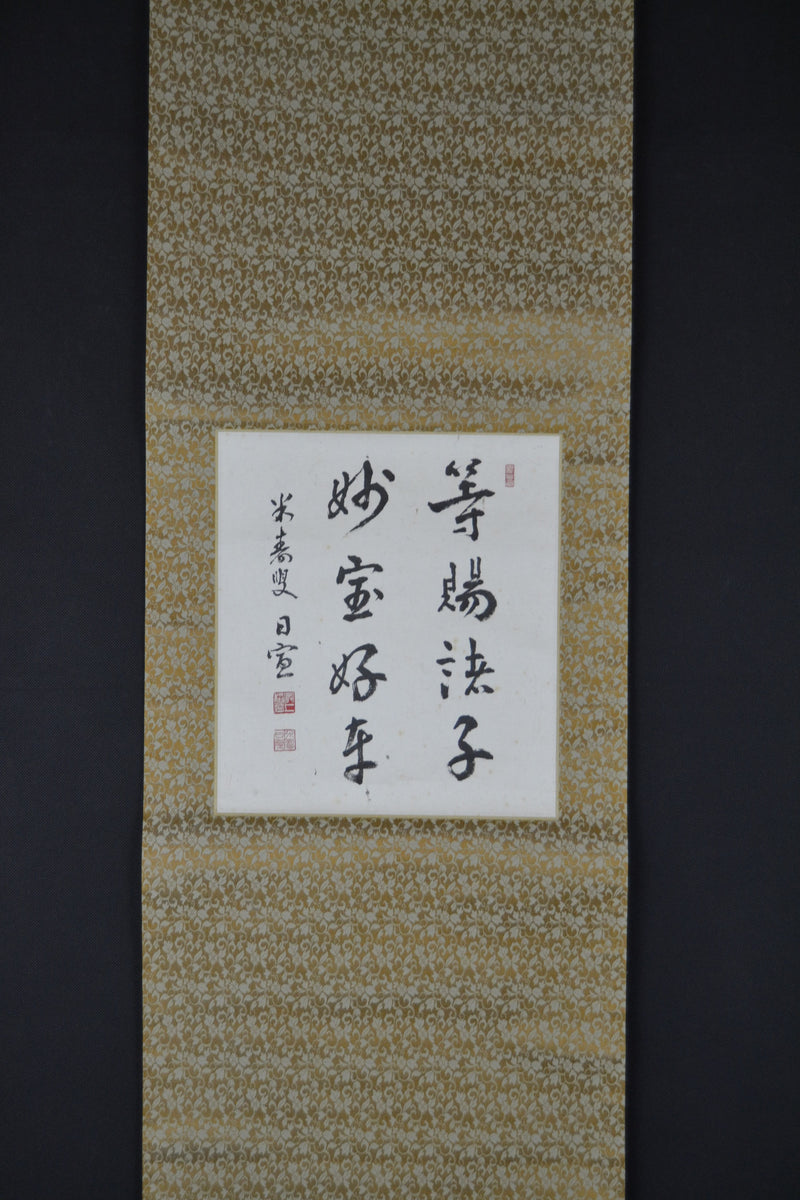 等賜諸子
妙宝好車
米寿叟 日宣